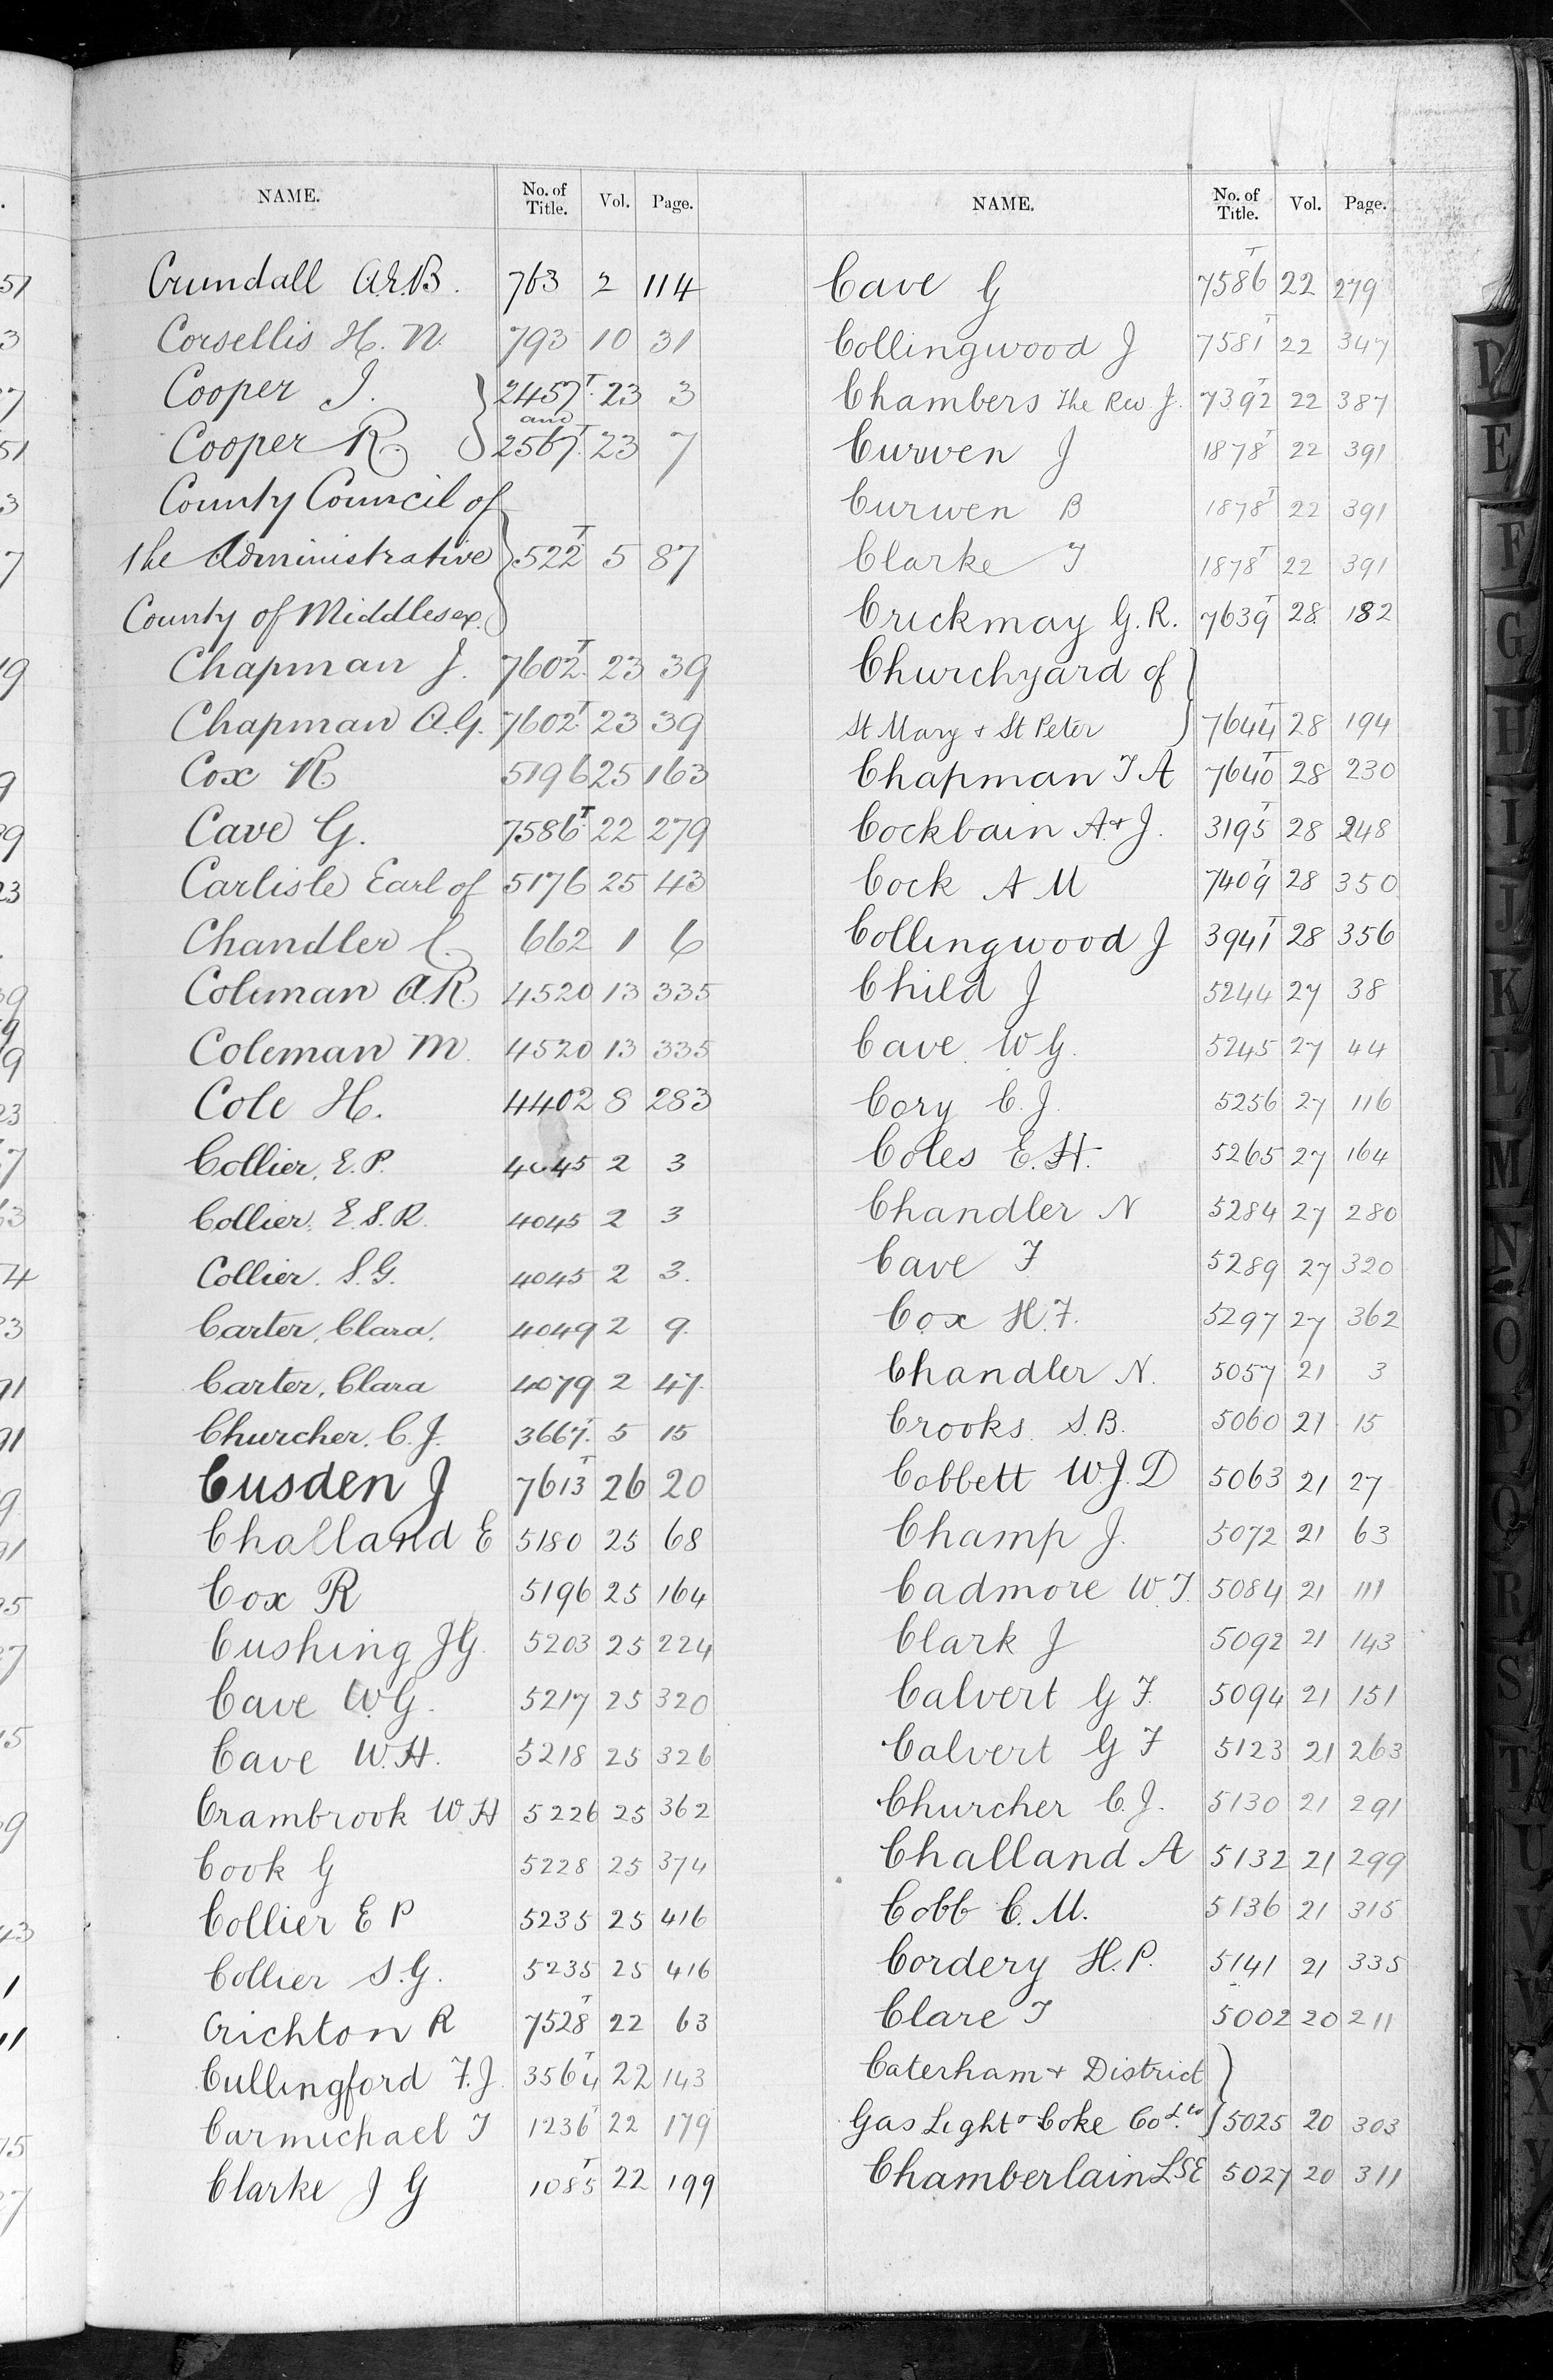 NAME. No. of Title. Vol. Page.
Crundall A.E.B. 763 2 114
Corsellis H. N. 793 10 31
Cooper J. 2457T 23 3
and
Cooper R. 2567T 23 7
County Council of
the Administrative 522T 5 87
County of Middlesex.
Chapman J. 7602T 23 39
Chapman A.G. 7602T 23 39
Cox R 5196 25 163
Cave G. 7586T 22 279
Carlisle Earl of 5176 25 43
Chandler C. 662 1 6
Coleman A.R. 4520 13 335
Coleman M. 4520 13 335
Cole H. 4402 8 283
Collier, E.P. 4045 2 3
Collier, E.S.R. 4045 2 3
Collier. S.G. 4045 2 3.
Carter, Clara. 4049 2 9.
Carter, Clara 4079 2 47.
Churcher. C.J. 3667T 5 15
Cusden J 7613T 26 20
Challand E 5180 25 68
Cox R 5196 25 164
Cushing J G. 5203 25 224
Cave W.G. 5217 25 320
Cave W.H. 5218 25 326
Crambrook W H 5226 25 362
Cook G 5228 25 374
Collier E P 5235 25 416
Collier S.G. 5235 25 416
Crichton R 7528T 22 63
Cullingford F.J. 3564T 22 143
Carmichael T 1236T 22 179
Clarke J G 1085T 22 199
NAME. No. of Title. Vol. Page.
Cave G 7586T 22 279
Collingwood J 7581T 22 347
Chambers The Rev J. 7392T 22 387
Curwen J 1878T 22 391
Curwen B 1878T 22 391
Clarke T 1878T 22 391
Crickmay G.R. 7639T 28 182
Churchyard of
St Mary + St Peter 7644T 28 194
Chapman T A 7640T 28 230
Cockbain A + J. 3195T 28 248
Cock A M 7409T 28 350
Collingwood J 3941T 28 356
Child J 5244 27 38
Cave W G. 5245 27 44
Cory C. J. 5256 27 116
Coles E.H. 5265 27 164
Chandler N 5284 27 280
Cave F 5289 27 320
Cox H.F. 5297 27 362
Chandler N. 5057 21 3
Crooks S.B. 5060 21 15
Cobbett W.J. D 5063 21 27
Champ J. 5072 21 63
Cadmore W.T. 5084 21 111
Clark J 5092 21 143
Calvert G F. 5094 21 151
Calvert G F 5123 21 263
Churcher C.J. 5130 21 291
Challand A 5132 21 299
Cobb C. M. 5136 21 315
Cordery H.P. 5141 21 335
Clare T 5002 20 211
Caterham + District
Gas Light + Coke Co Ltd 5025 20 303
Chamberlain L S E 5027 20 311
D
E
F
G
H
I
J
K
L
M
N
O
P
Q
R
S
T
U
V
W
X
Y